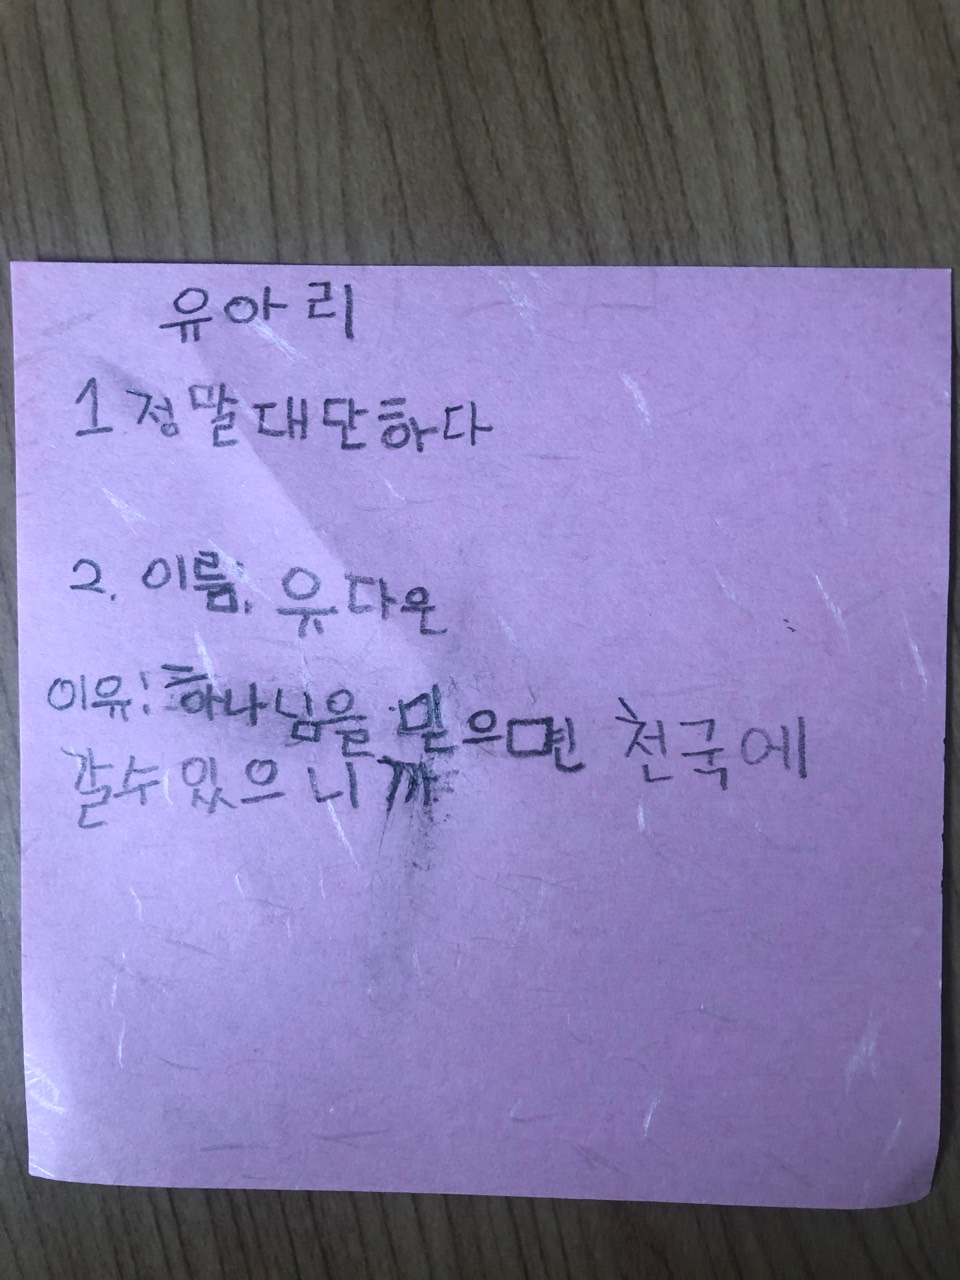 유아리
1 정말대단하다
2. 이름: 유다은
이유: 하나님을 믿으면 천국에
갈수있으니까